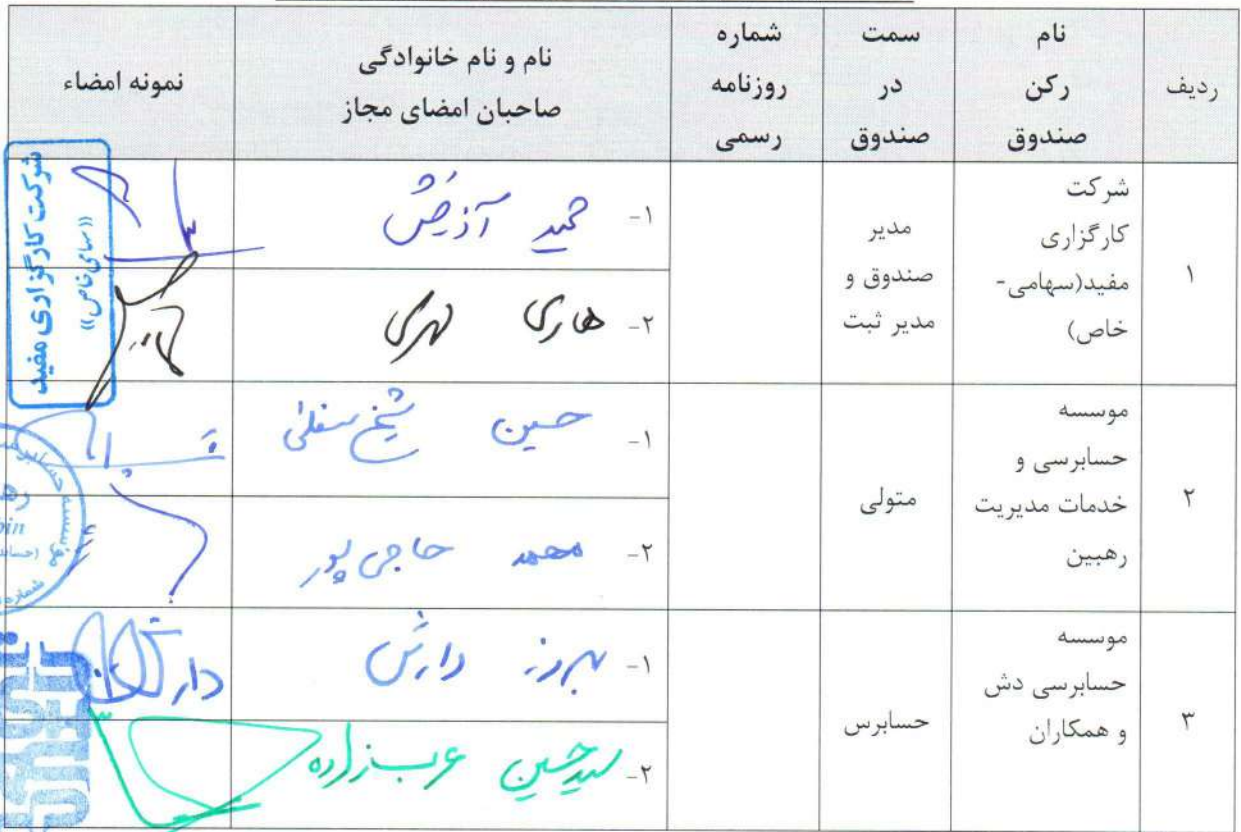 ردیف
نام
رکن
صندوق
سمت
در
صندوق
شماره
روزنامه
رسمی
نام و نام خانوادگی
صاحبان امضای مجاز
نمونه امضاء
۱
شرکت
کارگزاری
مفید(سهامی-
خاص)
مدیر
صندوق و
مدیر ثبت
۱- حمید آذرخش
۲- هادی مهری
شرکت کارگزاری مفید
((سهامی خاص))
۲
موسسه
حسابرسی و
خدمات مدیریت
رهبین
متولی
۱- حسین شیخ سفلی
۲- محمد حاجی پور
موسسه
شماره
۳
موسسه
حسابرسی دش
و همکاران
حسابرس
۱- بهروز دارش
۲- سیدحسین عرب زاده
دارش